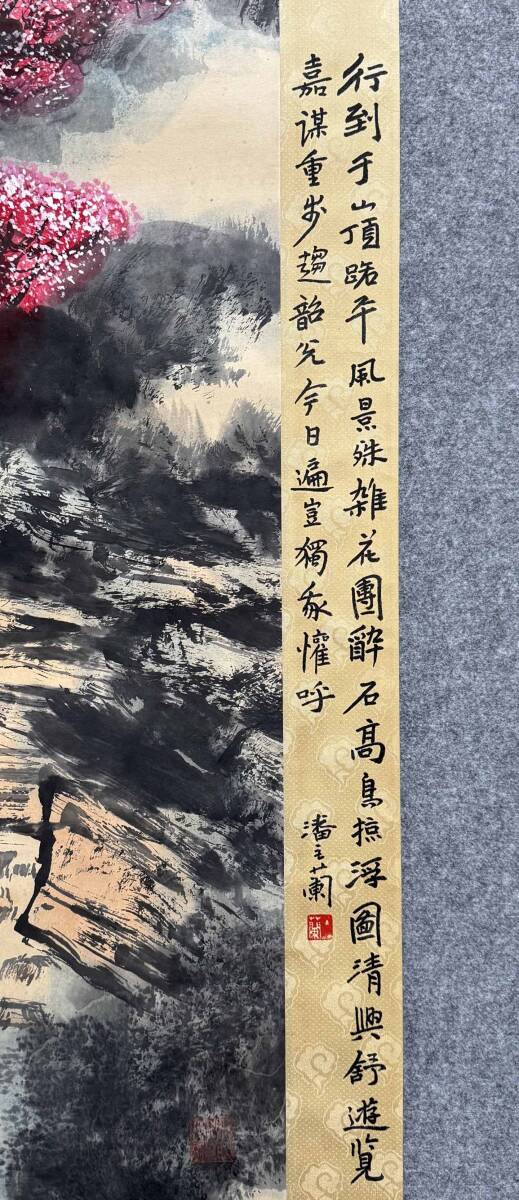 行到于山頂路平風景殊雑花團醉石高鳥掠浮圖清興舒遊覧
嘉謀重步趨韶光今日遍豈獨我懽呼
潘主蘭